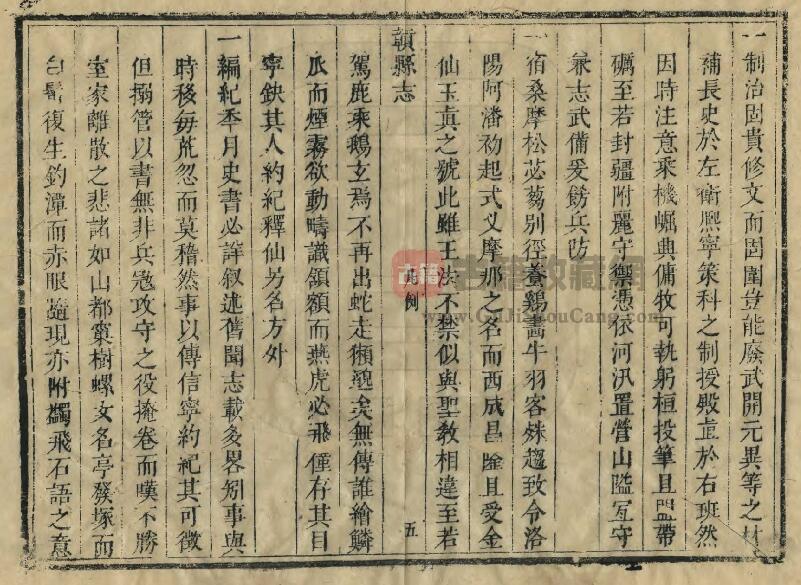 一制治固貴修文而固圉豈能廢武開元異等之材
補長史於左衛熈寧策科之制授殿直於右班然
因時注意乘機崛興傭牧可執躬桓投筆且盟帶
礪至若封疆附麗守禦憑依河汛置營山隘亙守
兼志武備爰飭兵防
一宿桑摩松苾蒭别徑養鷄畵牛羽客殊趨致令洛
陽阿潘初起式义摩那之名而西成昌隆且受金
仙玉真之號此雖王法不禁似與聖敎相違至若
贛縣志
凡例
五
駕鹿乘鵝玄焉不再出蛇走獺
矣無傳誰繪鱗
爪而煙霧欲動疇識頷額而燕虎必飛僅存其目
寧鈌其人約紀釋仙另名方外
一編紀季月史書必詳叙述舊聞志載多畧矧事與
時移每荒忽而莫稽然事以傳信寧約紀其可徵
但搦管以書無非兵寇攻守之役掩卷而嘆不勝
室家離散之悲諸如山都窠樹螺女名亭發塚而
白髩復生釣潭而赤眼隨現亦附蠲飛石語之意
古籍收藏网
www.GuJiShouCang.com